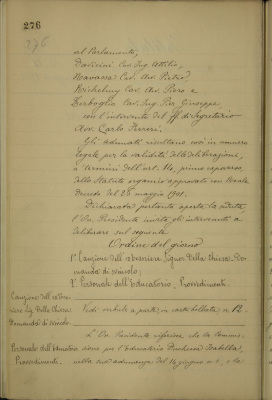 276
276
al Parlamento,
Pavicini Cav. Ing. Attilio,
Navassa Cav. Av. Pietro
Micheling Cav. Av. Piero e
Derboglio Cav. Ing. Pier Giuseppe,
con l'intervento del ff. di Segretario
Avv. Carlo Ferrero.
Gli adunati risultano così in numero
legale per la validità delle deliberazioni,
a termini dell'art. 14, primo capoverso,
dello Statuto organico approvato con Reale
Decreto del 28 maggio 1901.
Dichiarata pertanto aperta la seduta,
l'On. Presidente invita gli intervenuti a
deliberare sul seguente
Ordine del giorno
1° Cauzione dell'esattore Signor Della Chiesa. Do-
manda di svincolo;
2° Personale dell'Educatorio. Provvedimenti.
Cauzione
Sig. Della Chiesa.
Domanda di svincolo.
Vedi verbale a parte, in carta bollata, n. 12.
Personale dell'Educatorio
Provvedimenti.
L'On. Presidente riferisce che la Commis-
sione per l'Educatorio Duchessa Isabella,
nella sua adunanza del 14 giugno u. s., e la